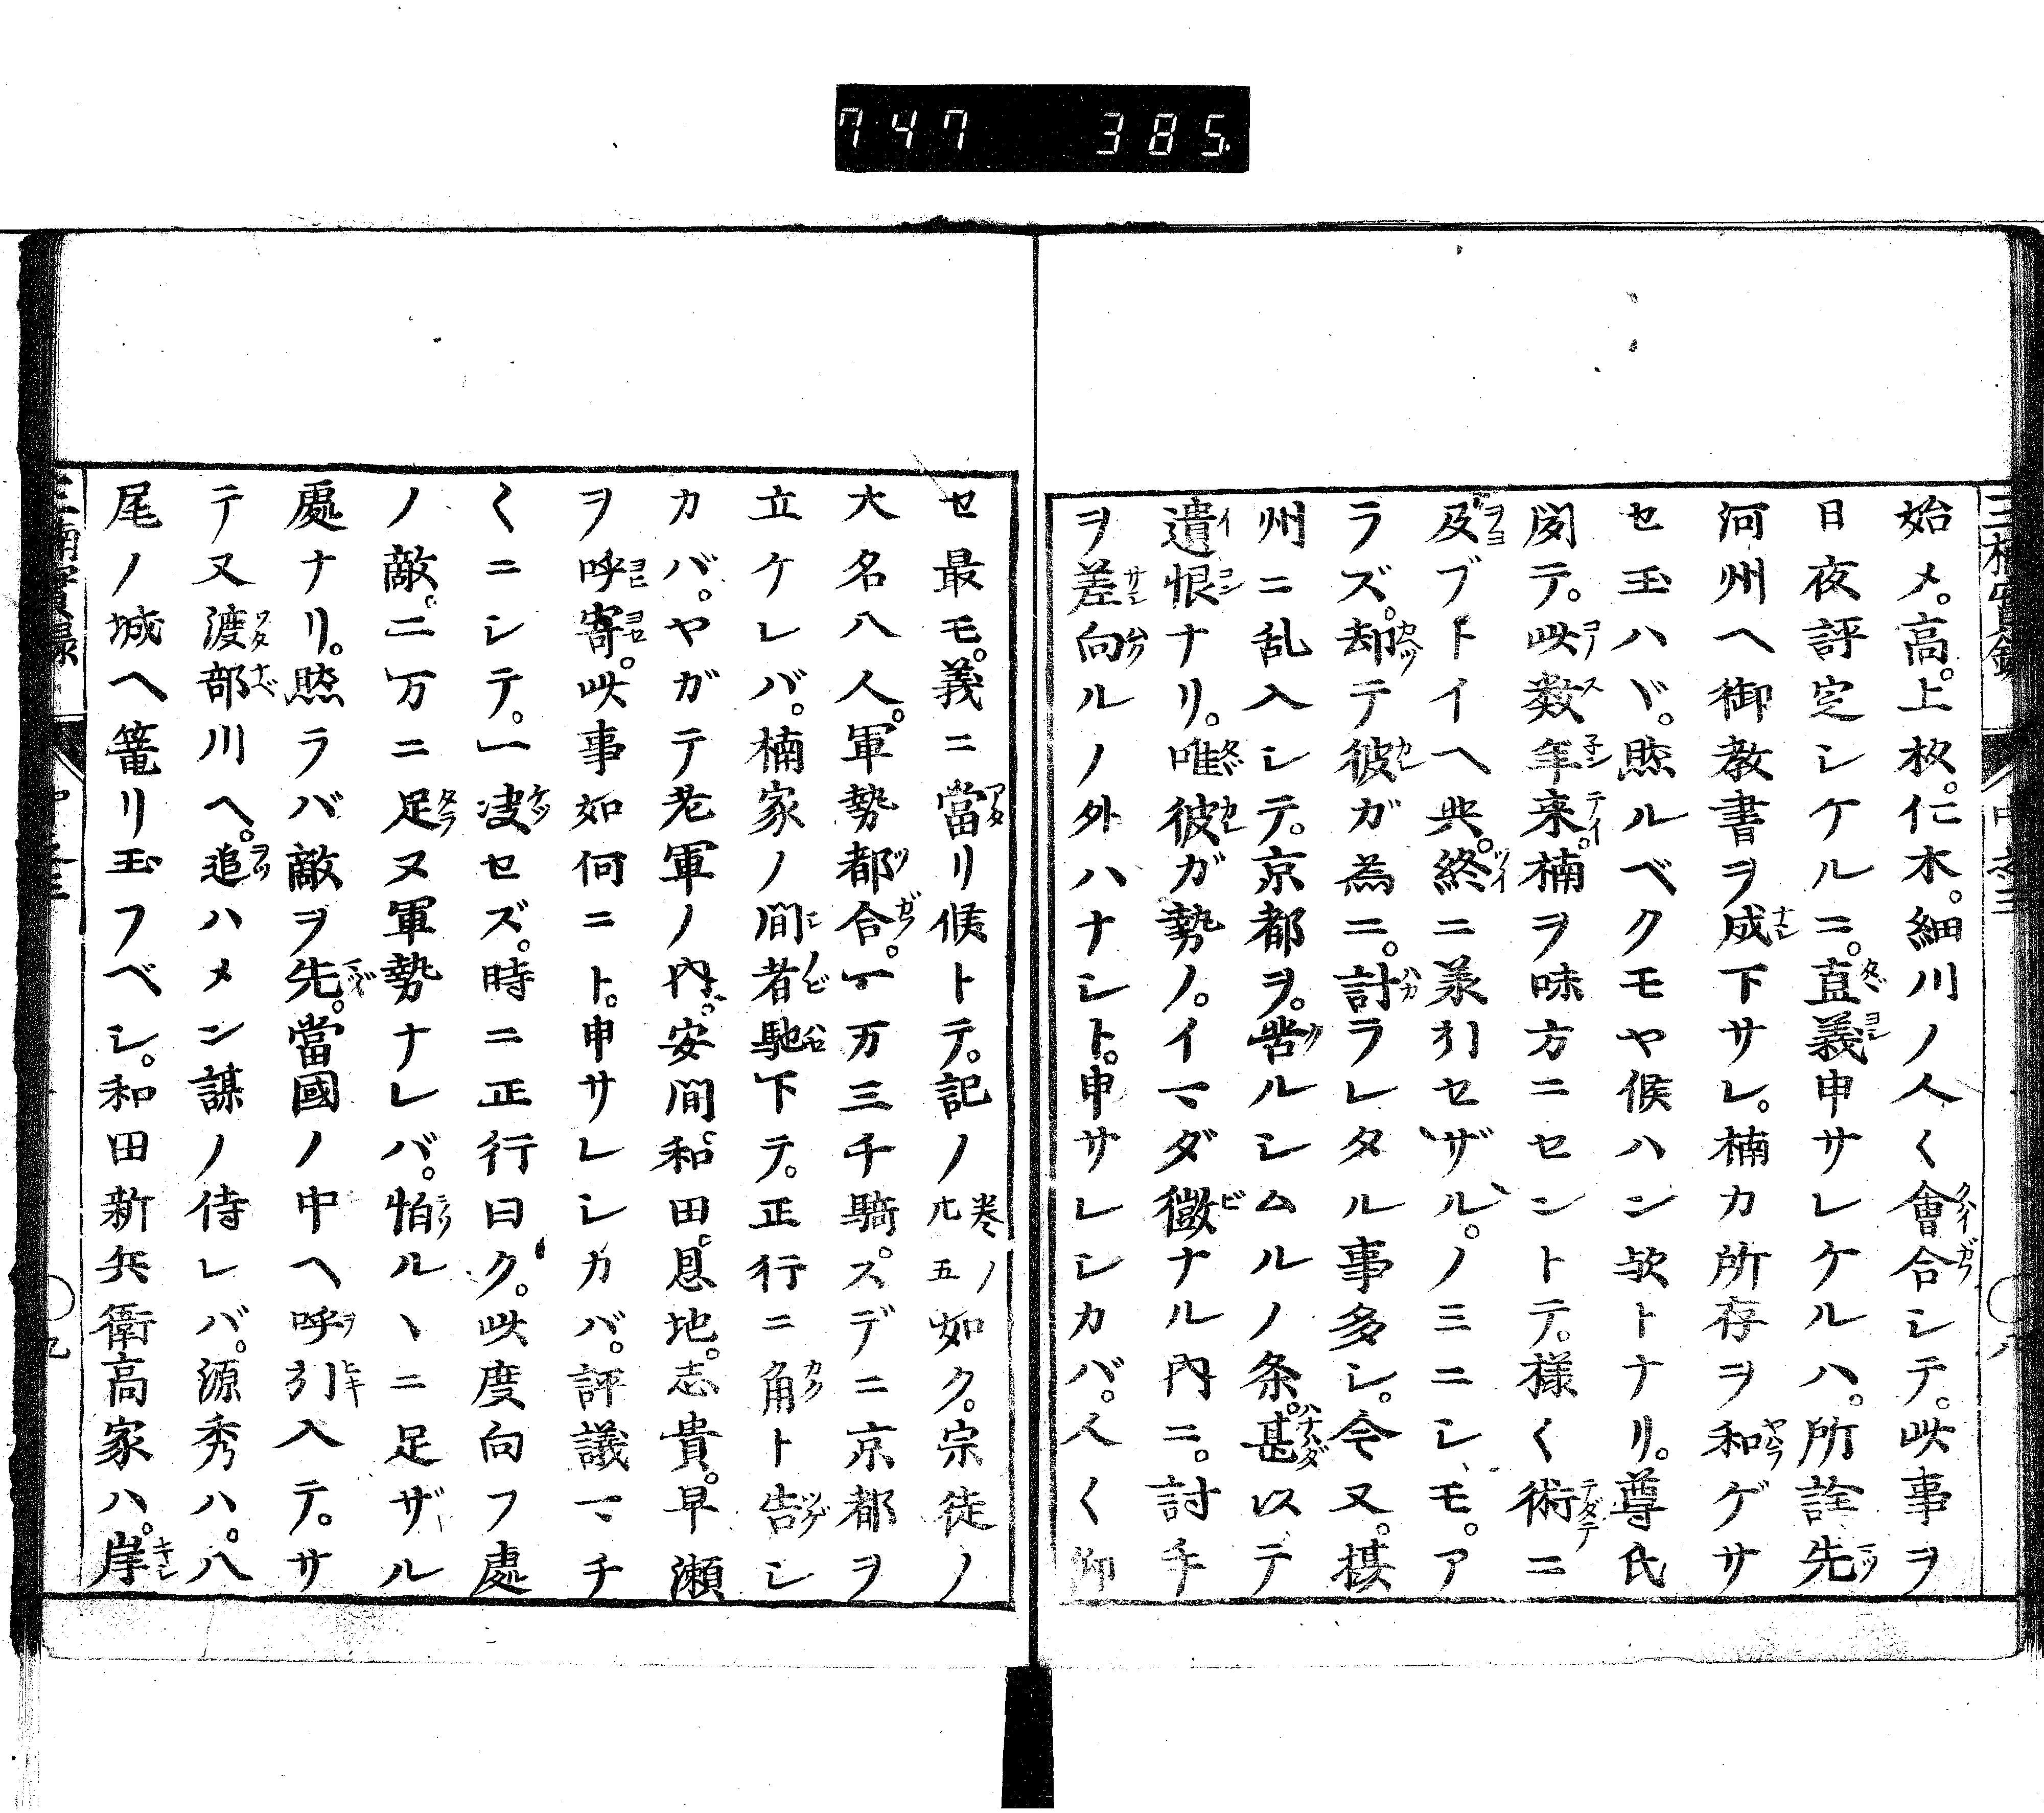 747 385
始メ。高。上杦。仁木。細川ノ人〱會合シテ。此事ヲ
日夜評定シケルニ。直義申サレケルハ。所詮先
河州ヘ御教書ヲ成下サレ。楠カ所存ヲ和ゲサ
セ玉ハヾ。然ルベクモヤ候ハン欤トナリ。尊氏
聞テ。此数年来。楠ヲ味方ニセントテ。様〱術ニ
及ブトイヘ𪜈。終ニ羕引セザル。ノミニシモ。ア
ラズ。却テ彼ガ為ニ。討ラレタル事多シ。今又。摂
州ニ乱入シテ。京都ヲ。苦ルシムルノ条。甚以テ
遺恨ナリ。唯彼ガ勢ノ。イマダ微ナル内ニ。討手
ヲ差向ルノ外ハナシト。申サレシカバ。人〱仰
セ最モ。義ニ當リ候トテ。記ノ卷ノ廿五如ク。宗徒ノ
大名八人。軍勢都合。一万三千騎。スデニ京都ヲ
立ケレバ。楠家ノ間者馳下テ。正行ニ角ト告シ
カバ。ヤガテ老軍ノ内。安間。和田。恩地。志貴。早瀬
ヲ呼寄。此事如何ニト。申サレシカバ。評議マチ
〱ニシテ。一决セズ。時ニ正行曰ク。此度向フ處
ノ敵。二万ニ足ヌ軍勢ナレバ。怕ルヽニ足ザル
處ナリ。然ラバ敵ヲ先。當國ノ中ヘ呼引入テ。サ
テ又渡部川ヘ。追ハメン謀ノ侍レバ。源秀ハ。八
尾ノ城ヘ篭リ玉フベシ。和田新兵衛高家ハ。岸